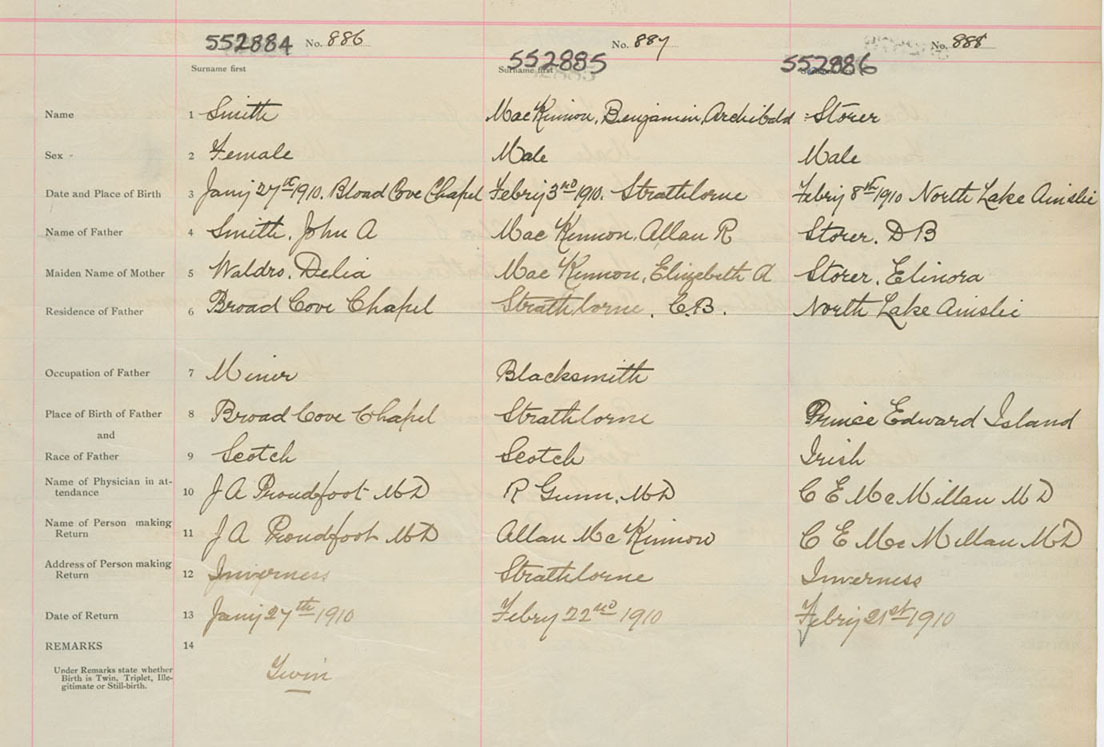 552884 No. 886 552885 No. 887 552886 No. 888
Surname first Surname first
Name 1 Smith MacKinnon, Benjamin, Archibald Storer
Sex - 2 Female Male Male
Date and Place of Birth 3 Jany 27th 1910. Bload Cove Chapel Febriy 3rd 1910. Strathlorne Febriy 8th 1910 North Lake Ainslie
Name of Father 4 Smith, John A Mac Kinnon, Allan R Storer, D B
Maiden Name of Mother 5 Waldro, Delia Mac Kinnon, Elizebeth A Storer, Elinora
Residence of Father 6 Broad Cove Chapel Strathlorne, C.B. North Lake Ainslie
Occupation of Father 7 Miner Blacksmith
Place of Birth of Father 8 Broad Cove Chapel Strathlorne Prince Edward Island
and
Race of Father 9 Scotch Scotch Irish
Name of Physician in at-
tendance 10 J A Proudfoot MD R Gunn, MD C E McMillan MD
Name of Person making
Return 11 J A Proudfoot MD Allan McKinnon C E McMillan MD
Address of Person making
Return 12 Inverness Strathlorne Inverness
Date of Return 13 Jany 27th 1910 Febry 22nd 1910 Febriy 21st 1910
REMARKS 14
Under Remarks state whether
Birth is Twin, Triplet, Ille-
gitimate or Still-birth.
Twin